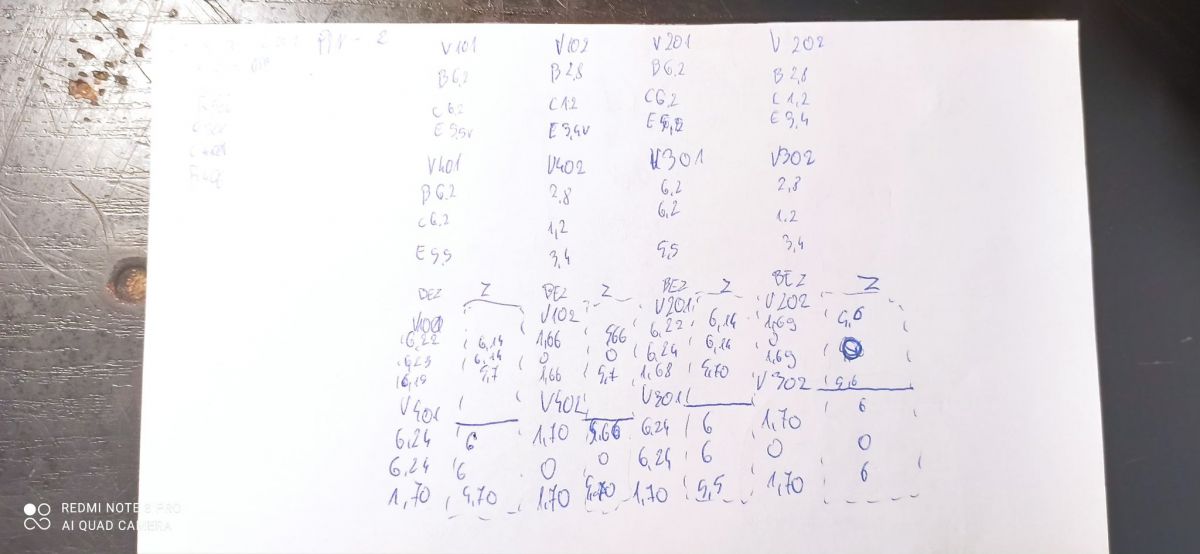 V101 V102 V201 V 202
B 6,2 B 2,8 B 6,2 B 2,8
C 6,2 C 1,2 C 6,2 C 1,2
E 5,5V E 3,4V E 3,4
V401 V402 V301 V302
B 6,2 2,8 6,2 2,8
C 6,2 1,2 6,2 1.2
E 5,5 3,4 5,5 3,4
BEZ Z BEZ Z BEZ Z BEZ Z
V101 V102 V201 V202
6,22 6,14 1,66 5,66 6,22 6,14 1,69 5,6
6,14 0 0 6,24 6,14 0
5,7 1,66 5,7 1,68 5,70 1,69 5,6
V401 V402 V301 V302
6,24 6 1,70 5,66 6,24 6 1,70 6
6,24 6 0 0 6,24 6 0 0
1,70 5,70 1,70 5,70 1,70 5,5 1,70 6
REDMI NOTE 8 PRO
AI QUAD CAMERA